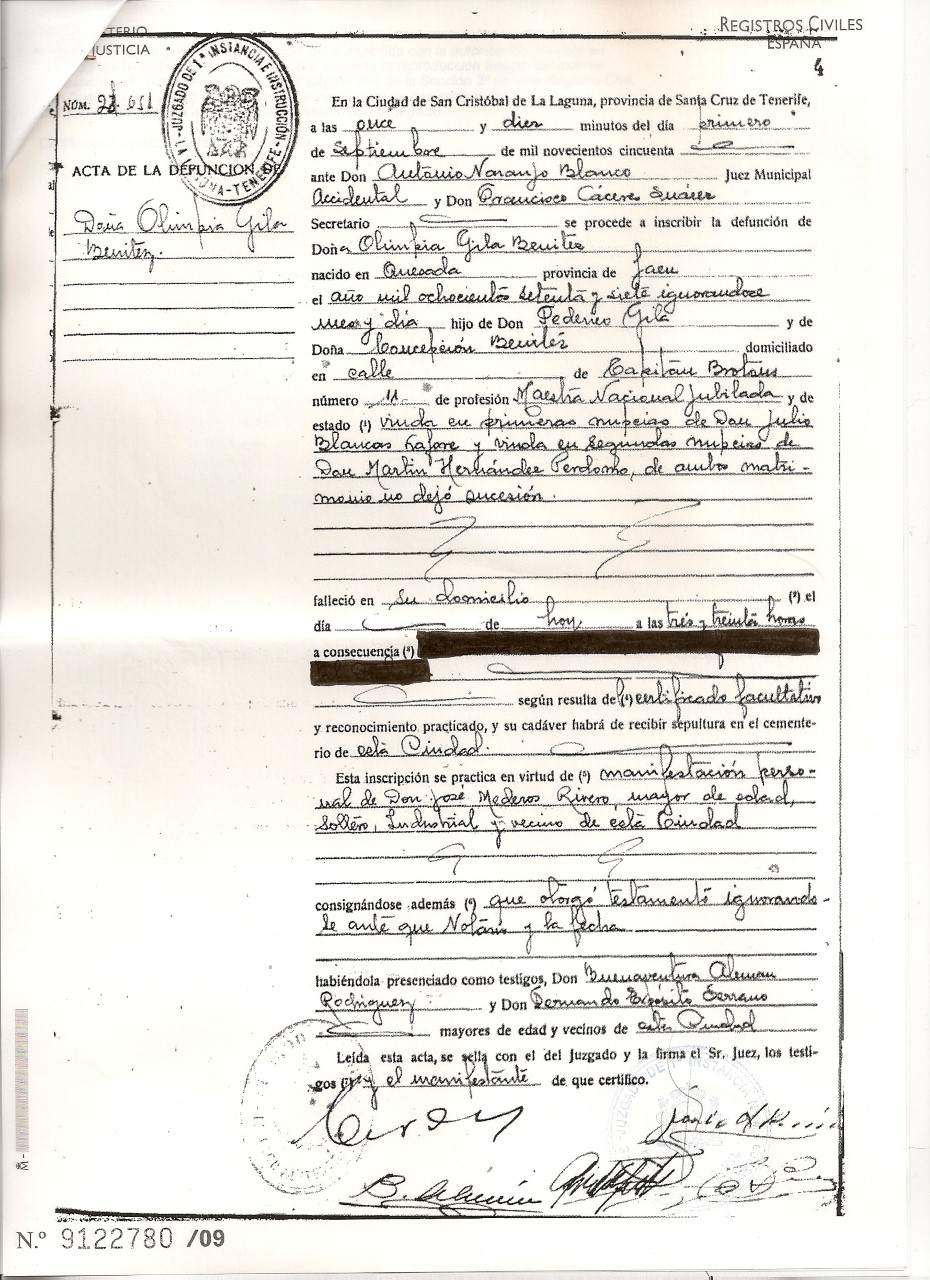 TERIO
JUSTICIA
REGISTROS CIVILES
ESPAÑA
4
LA LAGUNA-TENERIFE-JUZGADO DE 1ª INSTANCIA E INSTRUCCIÓN
NÚM. 651
ACTA DE LA DEFUNCION DE
Doña Olimpia Gila
Benitez.
En la Ciudad de San Cristóbal de La Laguna, provincia de Santa Cruz de Tenerife,
a las once y diez minutos del día primero
de Septiembre de mil novecientos cincuenta
ante Don Antonio Naranjo Blanco Juez Municipal
Accidental y Don Francisco Cáceres Suárez
Secretario se procede a inscribir la defunción de
Doña Olimpia Gila Benitez
nacido en Quesada provincia de Jaen
el año mil ochocientos setenta y siete ignorandose
mes y dia hijo de Don Federico Gila y de
Doña Concepción Benitez domiciliado
en calle de Capitán Brotons
número 11 de profesión Maestra Nacional Jubilada y de
estado (¹) viuda en primeras nupcias de Don Julio
Blancas Lafore y viuda en segundas nupcias de
Don Martin Hernández Perdomo, de ambos matri-
monio no dejó sucesión.
falleció en su domicilio (²) el
día de hoy a las tres y treinta horas
a consecuencia (³)
según resulta de (⁴) certificado facultativo
y reconocimiento practicado, y su cadáver habrá de recibir sepultura en el cemente-
rio de esta Ciudad.
Esta inscripción se practica en virtud de (⁵) manifestación perso-
nal de Don José Mederos Rivero, mayor de edad,
soltero, Industrial y vecino de esta Ciudad
consignándose además (⁶) que otorgó testamento ignorando-
se ante que Notario y la fecha
habiéndola presenciado como testigos, Don Buenaventura Aleman
Rodriguez y Don Fernando Expósito Serrano
mayores de edad y vecinos de esta Ciudad
Leída esta acta, se sella con el del Juzgado y la firma el Sr. Juez, los testi-
gos (⁷) y el manifestante de que certifico.
B. Alemán
N.º 9122780 /09